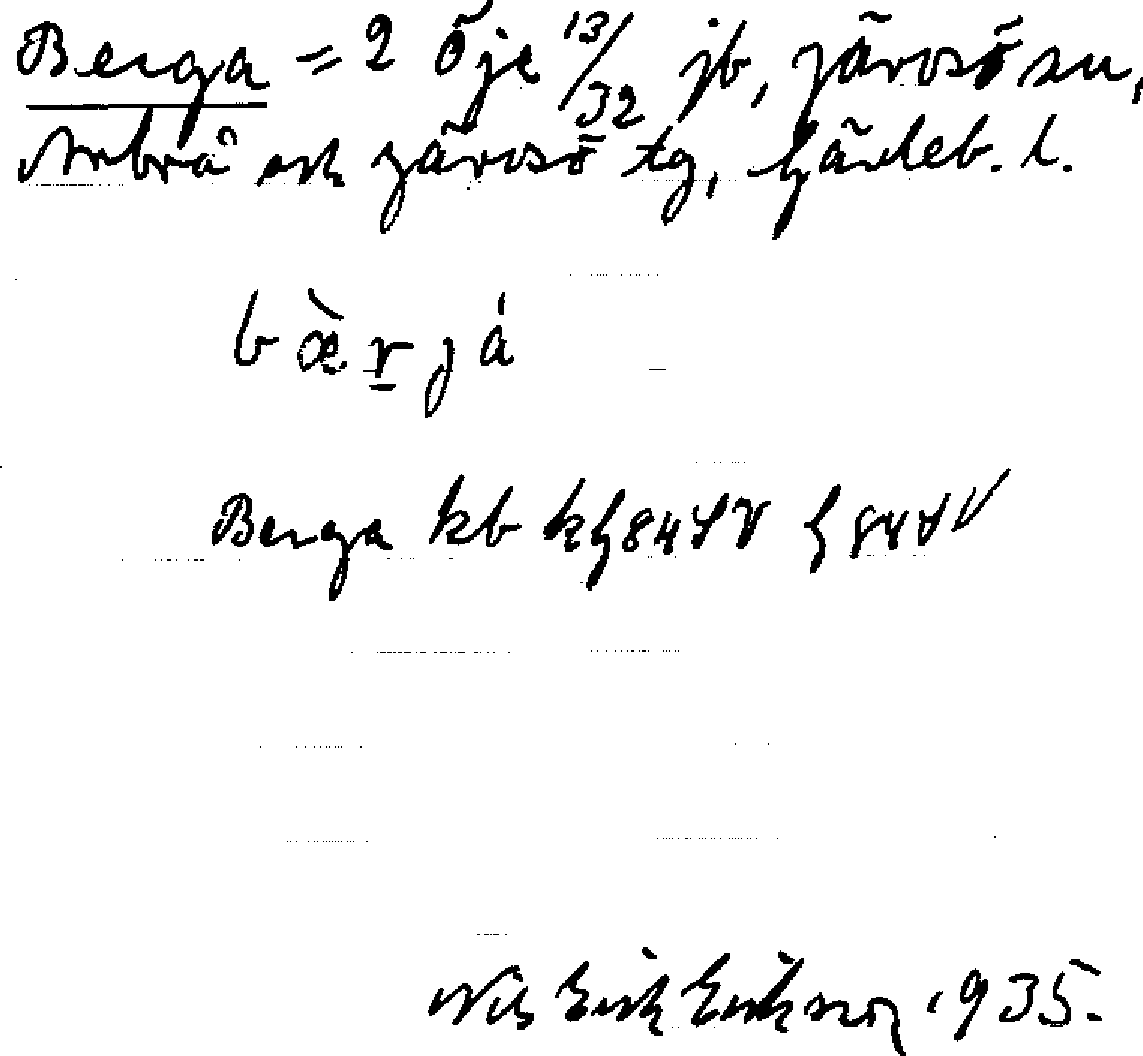 Berga = 2 Öje 13/32 jb, järvsö sn,
Arbrå och järvsö tg, Gävleb. l.
b æ̀ r̲ j á
Berga kb
Nils Erik Eriksson 1935.